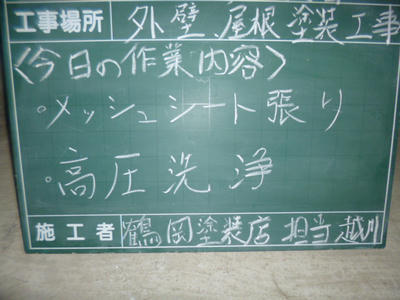 工事場所 外壁 屋根 塗装工事
〈今日の作業内容〉
・メッシュシート張り
・高圧洗浄
施工者 鶴岡塗装店 担当 越川